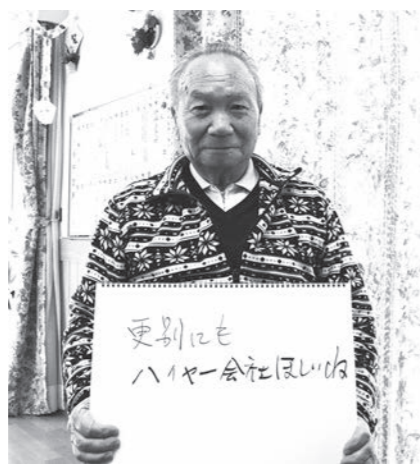 更別にも
ハイヤー会社ほしいね